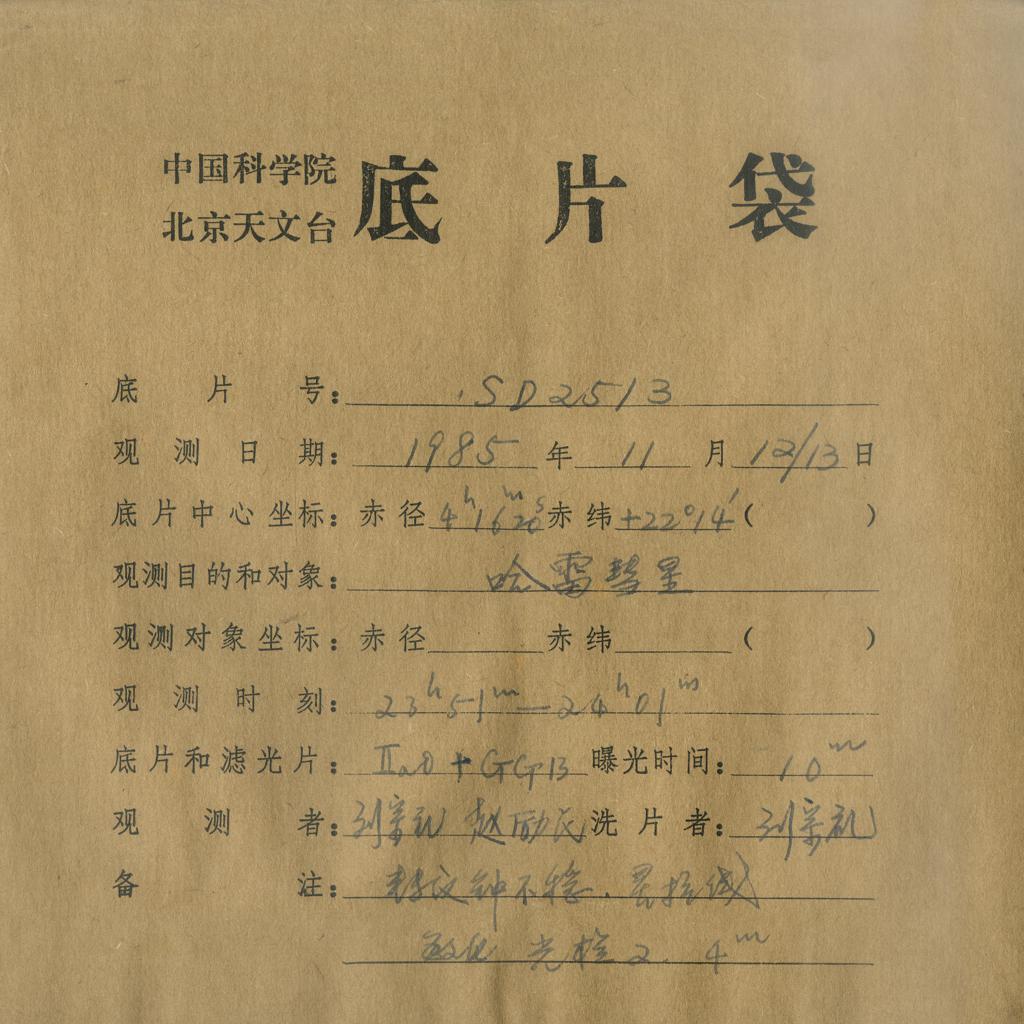 中国科学院
北京天文台
底片袋
底片号：SD2513
观测日期：1985年11月12/13日
底片中心坐标：赤径4ʰ16ᵐ20ˢ赤纬+22°14′（ ）
观测目的和对象：哈雷彗星
观测对象坐标：赤径 赤纬 （ ）
观测时刻：23ʰ51ᵐ—24ʰ01ᵐ
底片和滤光片：ⅡaO+GG13 曝光时间：10ᵐ
观测者：刘宗礼 赵励民 洗片者：刘宗礼
备注：钟不稳．星拉线
敏化 光栏2.4ᵐ